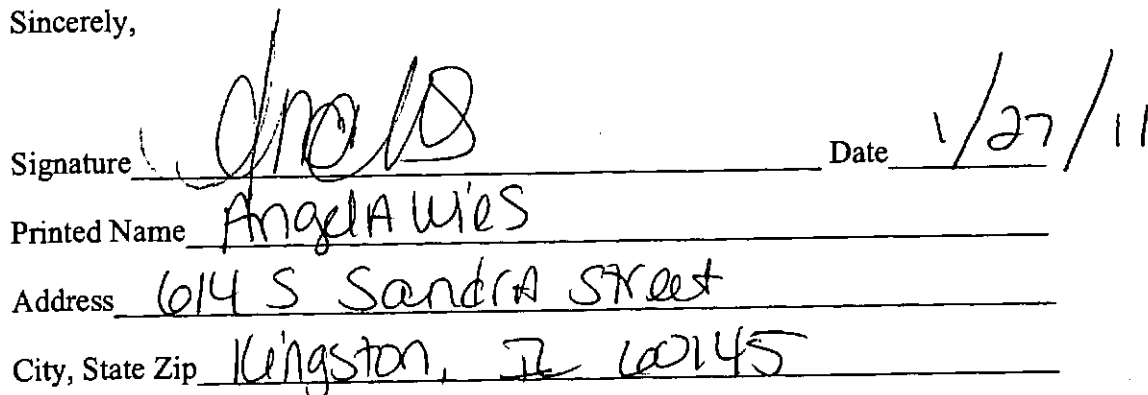 Sincerely,
Signature Date 1/27/11
Printed Name AngelA Wies
Address 614 S SandrA Street
City, State Zip Kingston, IL 60145